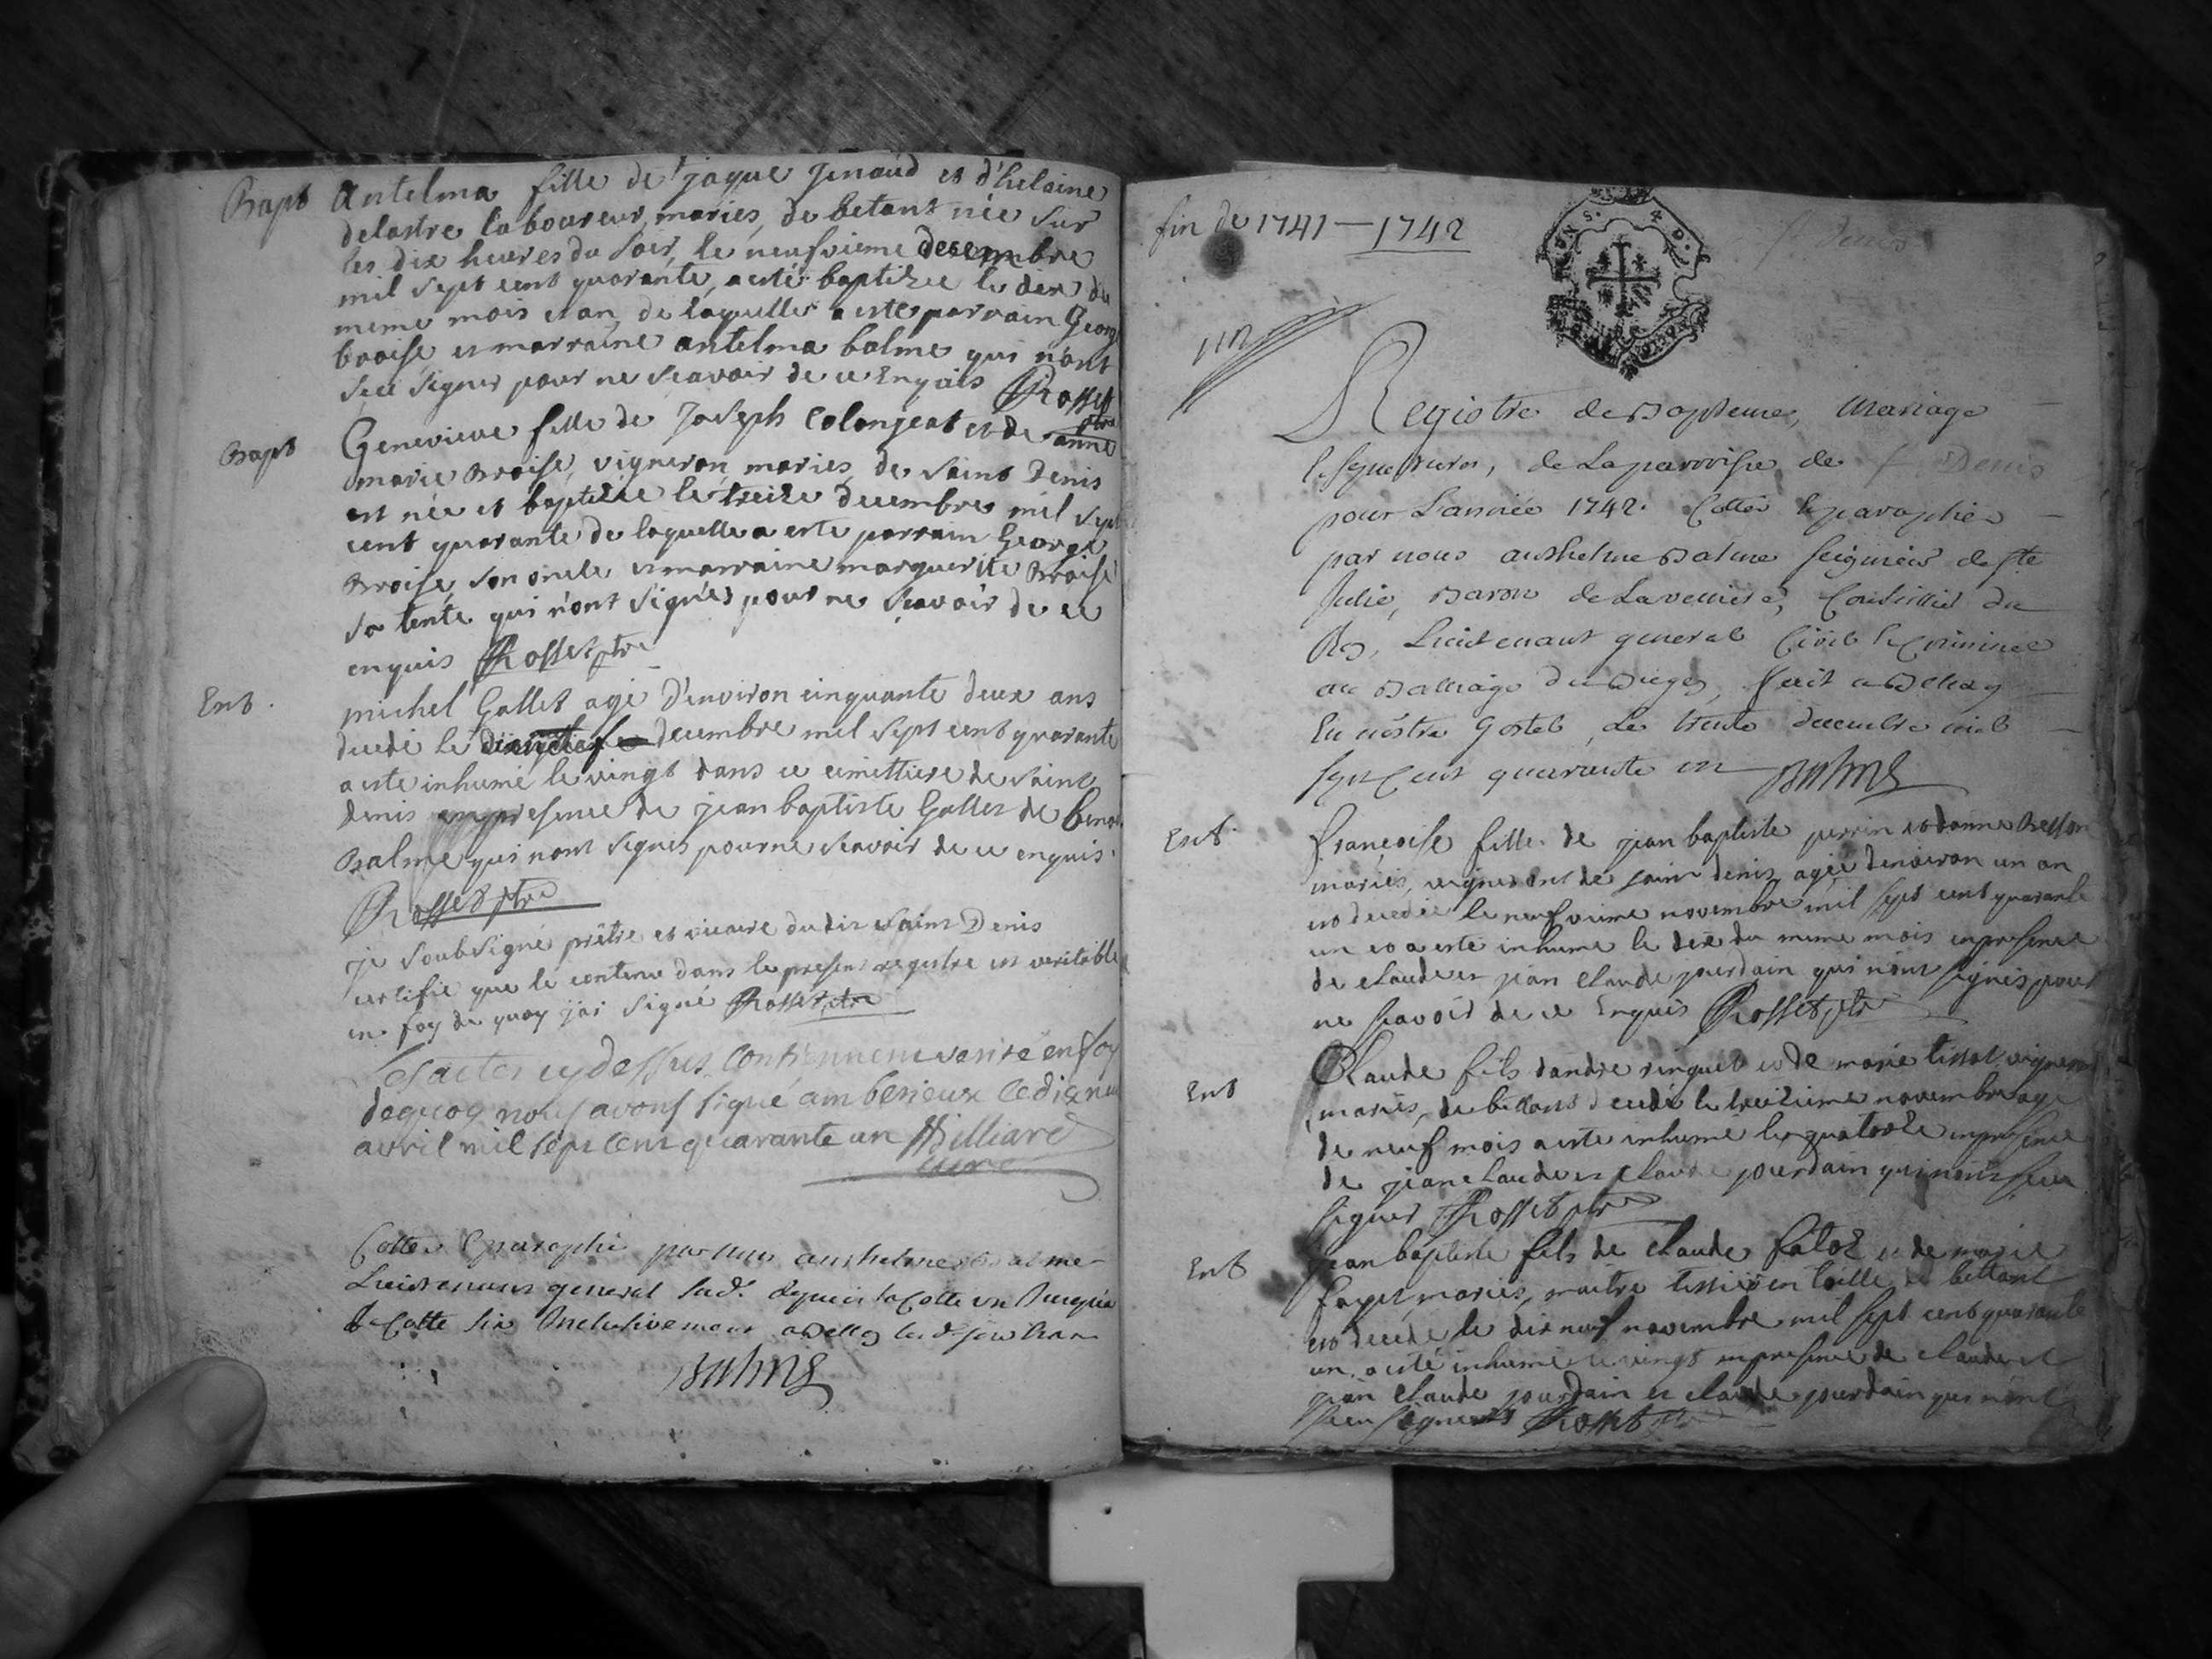 Bapt Antelma fille de jaque Genaud et d'helaine
delastre laboureur, mariés, de betant née sur
les dix heures du soir, le neufvieme decembre
mil sept cent quarante, a esté baptizée le dix du
meme mois et an, de laquelle a esté parrain George
broise et marraine antelma balme qui n'ont
sceu signer pour ne scavoir de ce Enquis Rosset
ptre
Bapt Genevieve fille de Joseph Colonjeat et de anne
marie Broise, vigneron, mariés, de Saint Denis
est née et baptizée le treize decembre mil sept
cent quarante de laquelle a esté parrain George
Broise, son oncle et marraine marguerite Broise
sa tente qui n'ont signés pour ne scavoir de ce
enquis Rosset ptre
Ent. michel Gallet agé d'environ cinquante deux ans
decedé le decembre mil sept cent quarante
a esté inhumé le vingt dans ce cimettiere de saint
denis en presence de jean baptiste Gallet de
Balme qui n'ont signés pour ne scavoir de ce enquis.
Rosset ptre
je soubsigné prêtre et vicaire dudit Saint Denis
certifie que le contenu dans le present registre est veritable
en foy de quoy j'ai signé Rosset ptre
Les actes cy dessus contiennent verité en foy
dequoy nous avons signé amberieux ce dix neuf
avril mil sept cent quarante un Billiard
curé
Cotté et paraphé par nous anthelme Balme
Lieutenant general depuis la Cotte un Jusques
a Cotte six Inclusivement a Belley
Balme
fin de 1741 — 1742
St Denis
Registre de Baptemes, Mariage
et sepultures, de la parroisse de St Denis
pour L'année 1742. Cotté et paraphé
par nous anthelme Balme seigneur de Ste
Julie, Baron de Lavelliere, Conseiller du
Roy, Lieutenant general Civil et Criminel
au Balliage du Bugey, fait a Belley
En nôtre hostel, le trente decembre mil
sept cent quarante un Balme
Ent. françoise fille de jean baptiste perrin et d'anne Besson
mariés, vignerons de saint denis, agée d'environ un an
est decedée le neufvieme novembre mil sept cent quarante
un et a esté inhumé le dix du meme mois en presence
de claude et jean claude jourdain qui n'ont signés pour
ne scavoir de ce Enquis Rosset ptre
Ent Claude fils d'andre ringuet et de marie tissot vigneron
mariés, de bettant decedé le treizieme novembre agé
de neuf mois a esté inhumé le quatorze en presence
de jean claude et claude jourdain qui n'ont sceu
signer Rosset ptre
Ent jean baptiste fils de claude et de marie
fayet, mariés, maitre tissier en toille de bettant
est decedé le dix neuf novembre mil sept cent quarante
un, a esté inhumé le vingt en presence de claude et
jean claude jourdain et claude jourdain qui n'ont
sceu signer Rosset ptre